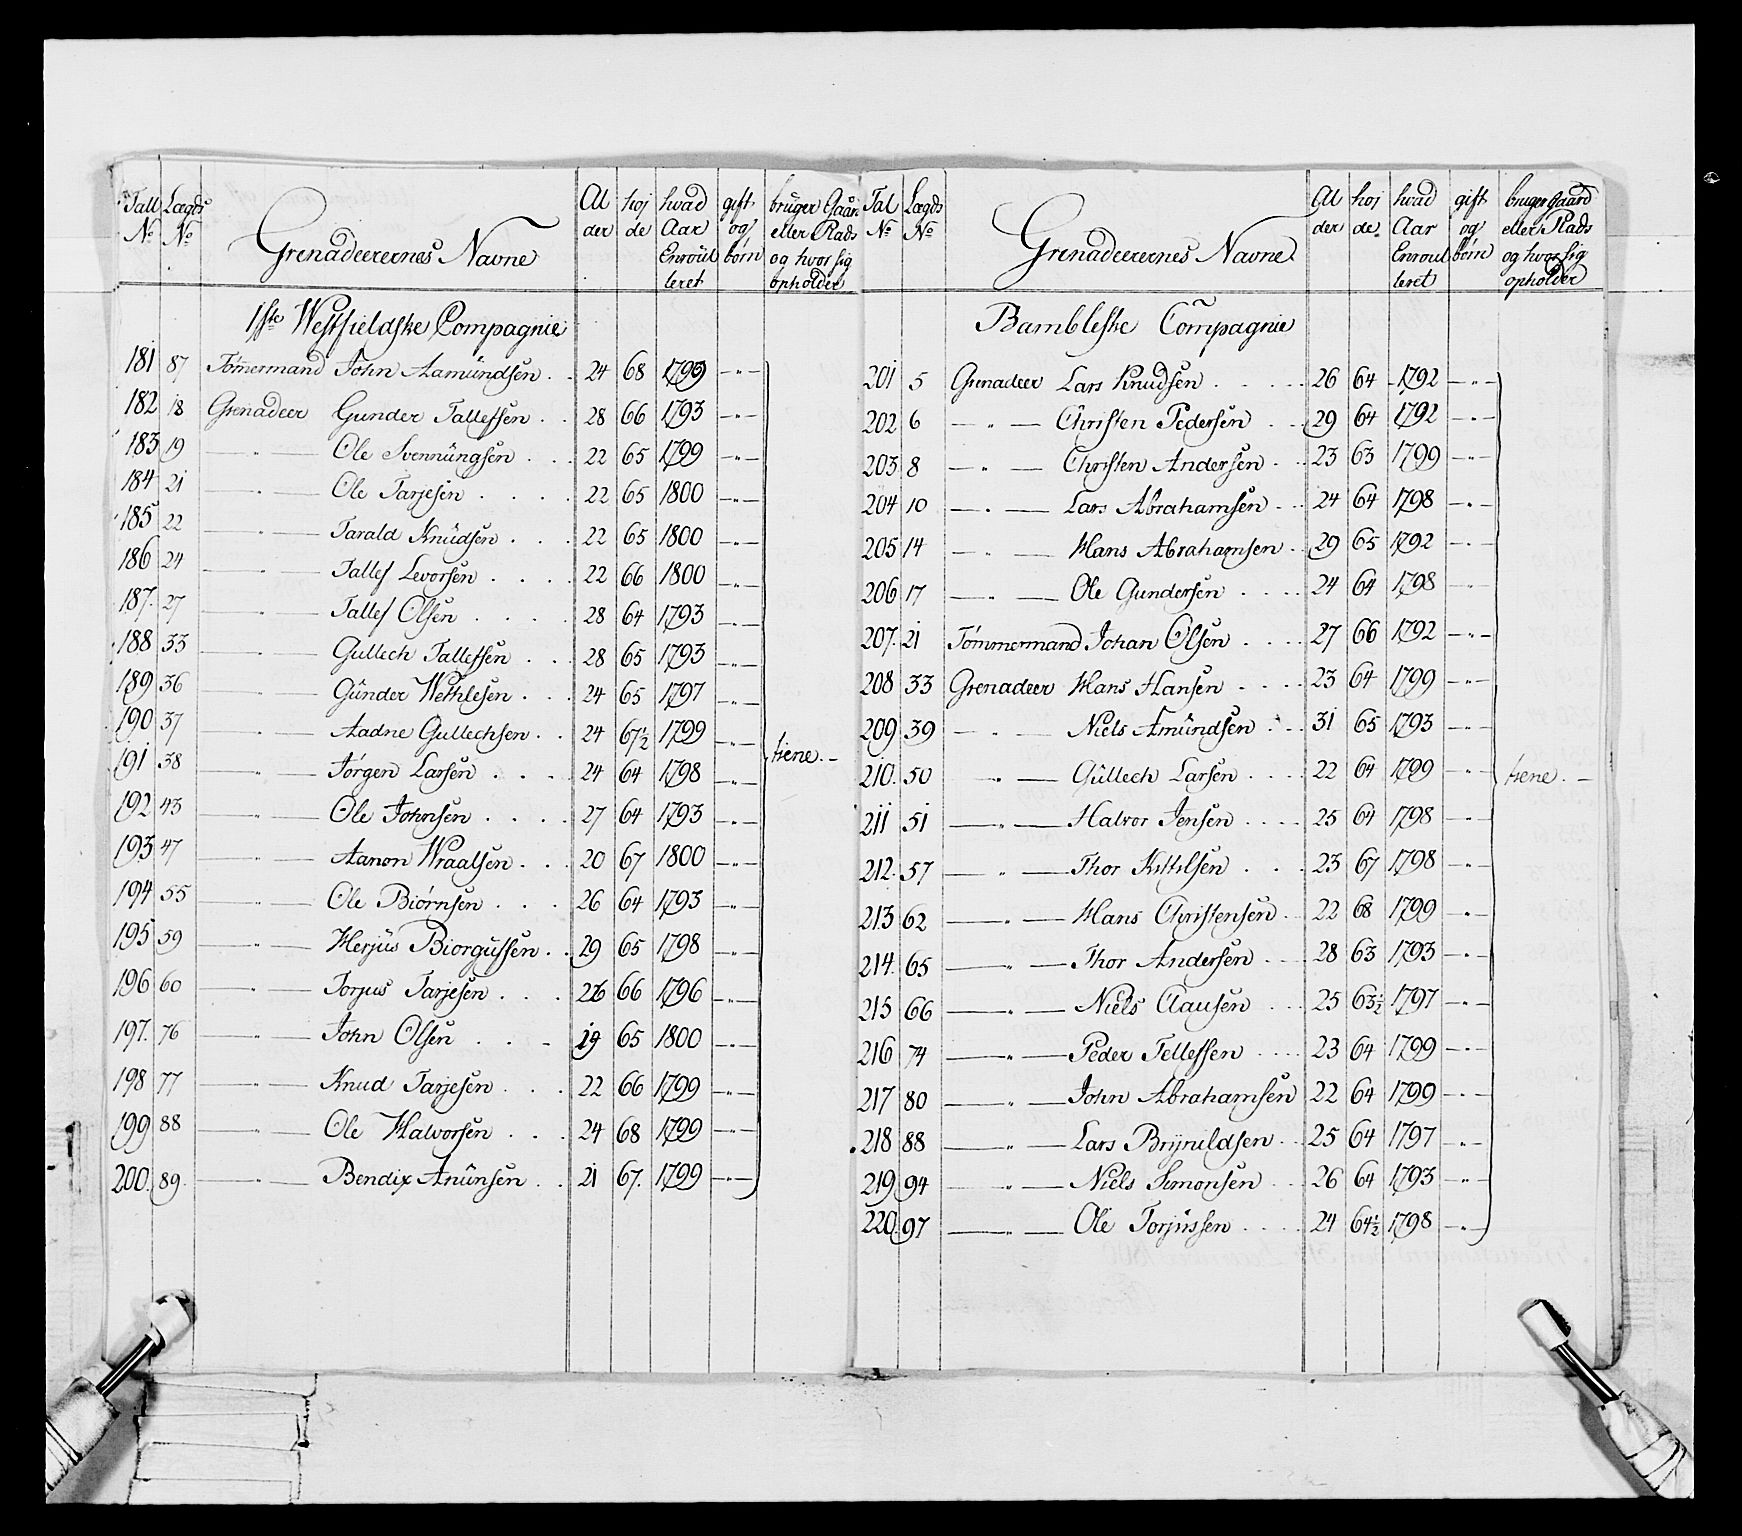 Tall No Lægds No Grenadeerernes Navne Al der høj de hvad Aar Enroul leret gift og børn bruger Gaard eller Plads og hvor sig opholder
1ste Westfieldske Compagnie
181 87 Tømermand John Aamundsen . . 24 68 1799 — " —
182 18 Grenadeer Gunder Tallefsen . . 28 66 1793 — " —
183 19 — " — Ole Svennüngsen . . . 22 65 1799 — " —
184 21 — " — Ole Tarjesen . . . . 22 65 1800 — " —
185 22 — " — Tarald Knüdsen . . . 22 65 1800 — " —
186 24 — " — Tallef Levorsen . . . . 22 66 1800 — " —
187. 27 — " — Tallef Olsen . . . . 28 64 1793 — " —
188 33 — " — Gullech Tallefsen . . . 28 65 1793 — " —
189 36 — " — Günder Wethlesen . . . 24 65 1797 — " —
190 37 — " — Aadne Gullechsen . . 24 67½ 1799 — " — tiene . —
191 38 — " — Jørgen Larsen . . . . 24 64 1798 — " —
192 43 — " — Ole Johnsen . . . . 27 64 1793 — " —
193 47 — " — Aanon Wraalsen . . . 20 67 1800 — " —
194 55 — " — Ole Biørnsen . . . 26 64 1793 — " —
195 59 — " — Herjüs Biorgufsen . . 29 65 1798 — " —
196 60 — " — Torjus Tarjesen . . . 26 66 1796 — " —
197. 76 — " — John Olsen . . . 19 65 1800 — " —
198 77 — " — Knud Tarjesen . . . 22 66 1799 — " —
199 88 — " — Ole Halvorsen . . . 24 68 1799 — " —
200. 89. — " — Bendix Anünsen . . 21 67. 1799 — " —
Tal No Lægds No Grenadeerernes Navne Al der høj de hvad Aar Enroul leret gift og børn bruger Gaard eller Plads og hvor sig opholder
Bambleske Compagnie
201 5 Grenadeer Lars Knudsen . . . . 26 64 1792 — " —
202 6 — " — Christen Pedersen . . . 29 64 1792 — " —
203 8 — " — Christen Andersen . . . 23 63 1799 — " —
204 10 — " — Lars Abrahamsen . . . 24 64 1798 — " —
205 14 — " — Hans Abrahamsen . . 29 65 1792 — " —
206 17 — " — Ole Gundersen . . . . 24 64 1798 — " —
207. 21 Tømmermand Johan Olsen . . . . 27 66 1792 — " —
208 33 Grenadeer Hans Hansen . . . . 23 64 1799 — " —
209. 39 — " — Niels Amündsen . . . 31 65 1793 — " —
210. 50 — " — Güllech Larsen . . . . 22 64 1799 — " — tiene . —
211 51 — " — Halvor Jensen . . . . 25 64 1798 — " —
212. 57 — " — Thor Kittilsen . . . 23 67 1798 — " —
213 62 — " — Hans Christensen . . 22 68 1799 — " —
214. 65 — " — Thor Andersen . . . 28 63 1793 — " —
215 66 — " — Niels Clausen . . . 25 63½ 1797 — " —
216 74 — " — Peder Tellefsen . . . . 23 64 1799 — " —
217 80 — " — John Abrahamsen 22 64 1799 — " —
218 88 — " — Lars Brÿnildsen . . 25 64 1797 — " —
219 94 — " — Niels Simonsen . . . 26 64 1793 — " —
220. 97 — " — Ole Torjüssen . . . . 24 64½ 1798 — " —